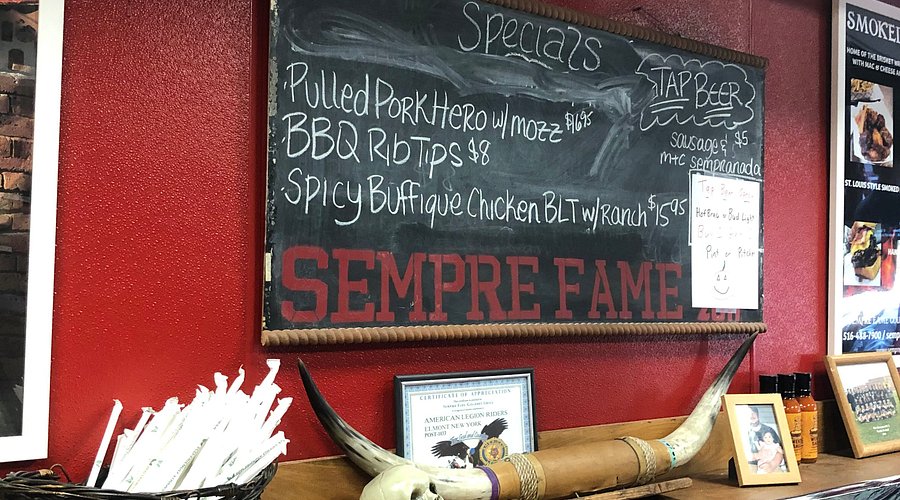 Specials
Pulled Pork Hero w/ mozz $16.95
BBQ Rib Tips $8
Spicy Buffique Chicken BLT w/ Ranch $15.95
TAP BEER
sausage & $5
m+c sempranada
Tap Beer
HofBrau or Bud Light
Pint or Pitcher
SEMPRE FAME
CERTIFICATE OF APPRECIATION
AMERICAN LEGION RIDERS
ELMONT NEW YORK
POST-1033
SMOKE
HOME OF THE BRISKET
WITH MAC & CHEESE
ST. LOUIS STYLE SMOKED